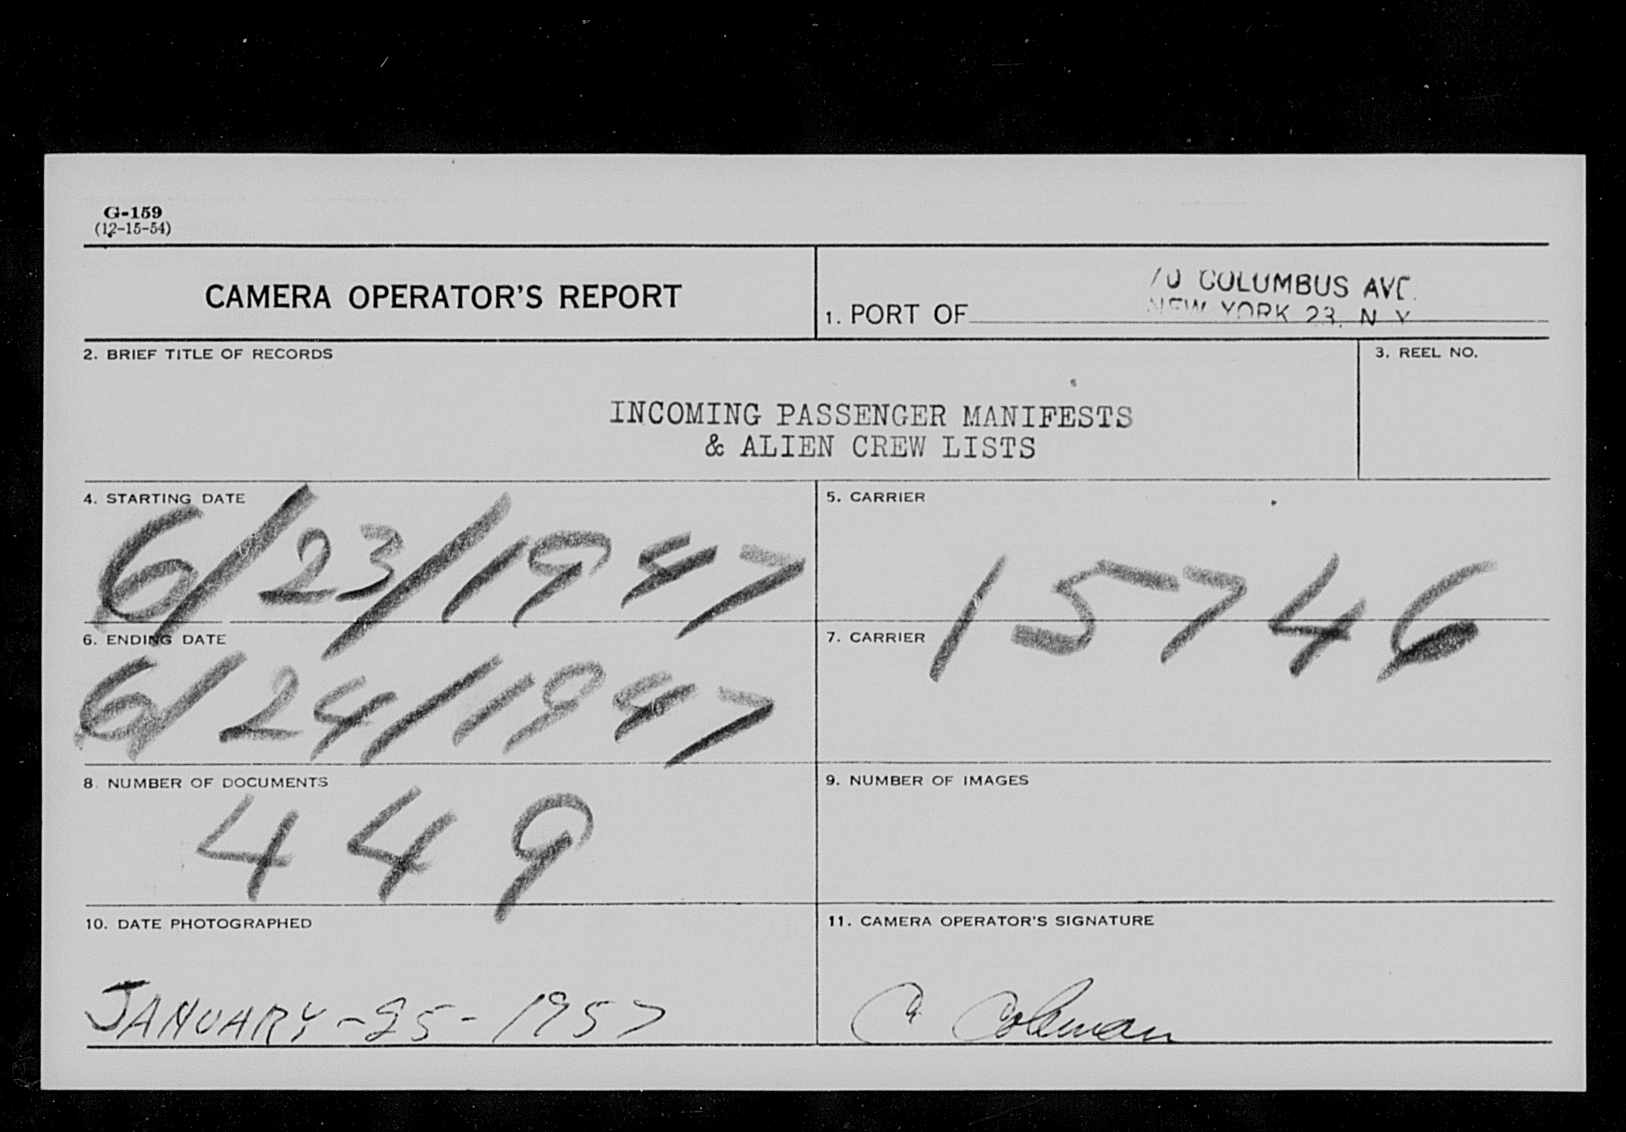 G-159
(12-15-54)
CAMERA OPERATOR'S REPORT
70 COLUMBUS AVE.
1. PORT OF NEW YORK 23, N. Y.
2. BRIEF TITLE OF RECORDS
3. REEL NO.
INCOMING PASSENGER MANIFESTS
& ALIEN CREW LISTS
4. STARTING DATE
6/23/1947
5. CARRIER
15746
6. ENDING DATE
6/24/1947
7. CARRIER
8. NUMBER OF DOCUMENTS
449
9. NUMBER OF IMAGES
10. DATE PHOTOGRAPHED
JANUARY-25-1957
11. CAMERA OPERATOR'S SIGNATURE
C Coleman